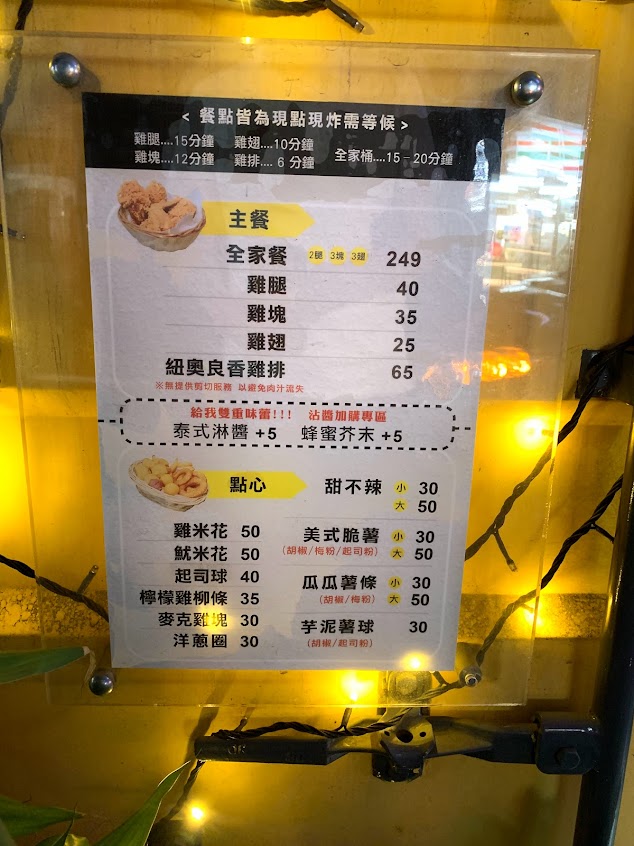 < 餐點皆為現點現炸需等候 >
雞腿....15分鐘 雞翅....10分鐘
雞塊....12分鐘 雞排.... 6 分鐘 全家桶....15 - 20分鐘
主餐
全家餐 2腿 3塊 3翅 249
雞腿 40
雞塊 35
雞翅 25
紐奧良香雞排 65
※無提供剪切服務 以避免肉汁流失
給我雙重味蕾!!! 沾醬加購專區
泰式淋醬 +5 蜂蜜芥末 +5
點心
雞米花 50
魷米花 50
起司球 40
檸檬雞柳條 35
麥克雞塊 30
洋蔥圈 30
甜不辣 小 30
大 50
美式脆薯 小 30
(胡椒/梅粉/起司粉) 大 50
瓜瓜薯條 小 30
(胡椒/梅粉) 大 50
芋泥薯球 30
(胡椒/起司粉)